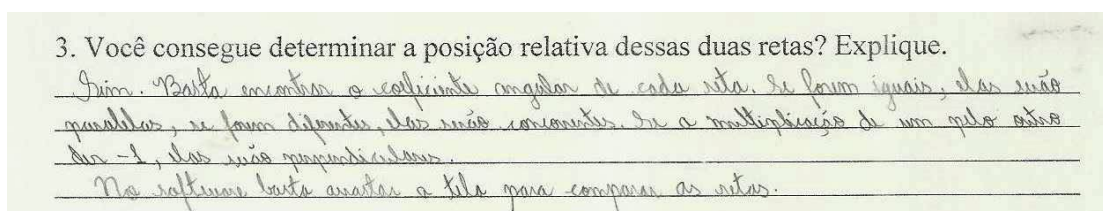 3. Você consegue determinar a posição relativa dessas duas retas? Explique.
Sim. Basta encontrar o coeficiente angular de cada reta. Se forem iguais, elas serão
paralelas, se forem diferentes, elas serão concorrentes. Se a multiplicação de um pelo outro
der -1, elas serão perpendiculares.
No software basta arrastar a tela para comparar as retas.